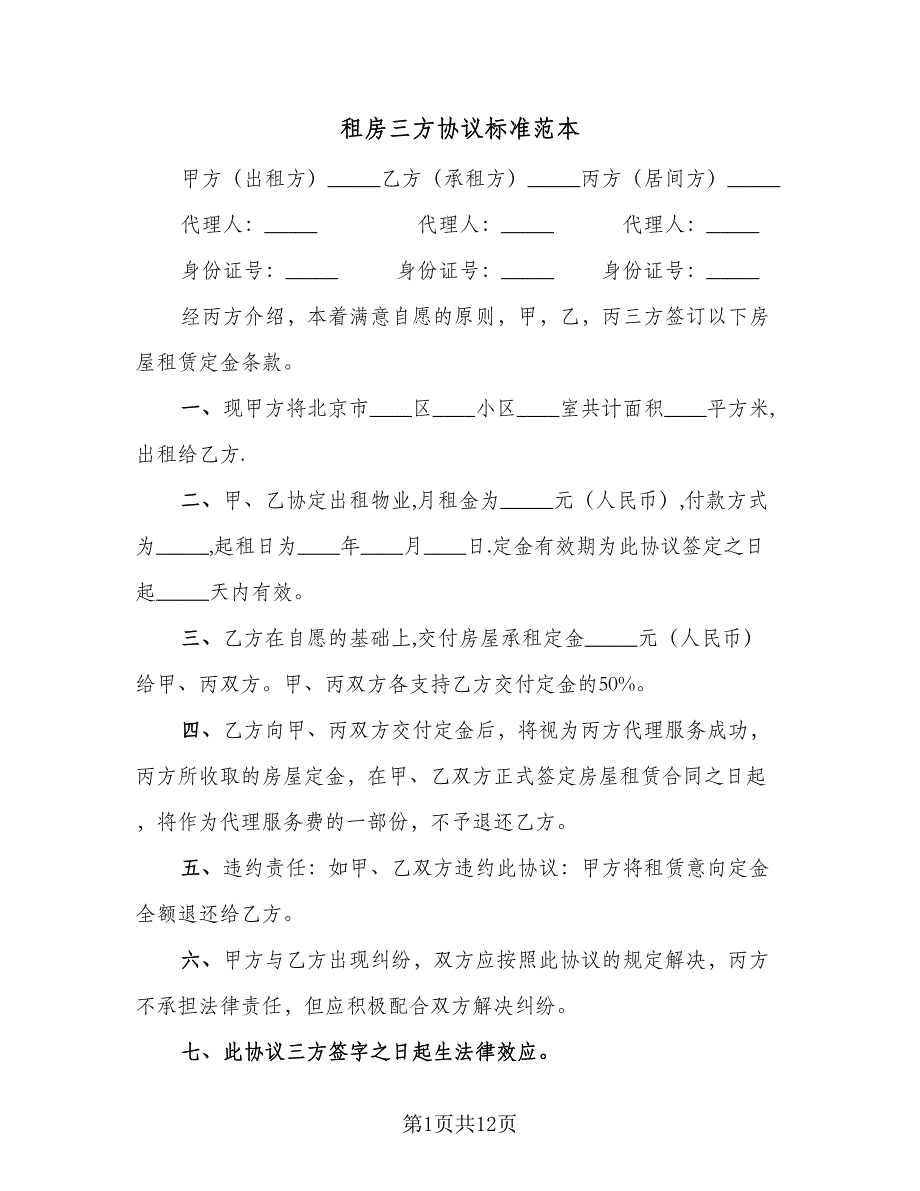 租房三方协议标准范本
甲方（出租方）_____乙方（承租方）_____丙方（居间方）_____
代理人：_____ 代理人：_____ 代理人：_____
身份证号：_____ 身份证号：_____ 身份证号：_____
经丙方介绍，本着满意自愿的原则，甲，乙，丙三方签订以下房
屋租赁定金条款。
一、现甲方将北京市____区____小区____室共计面积____平方米,
出租给乙方.
二、甲、乙协定出租物业,月租金为_____元（人民币）,付款方式
为_____,起租日为____年____月____日.定金有效期为此协议签定之日
起_____天内有效。
三、乙方在自愿的基础上,交付房屋承租定金_____元（人民币）
给甲、丙双方。甲、丙双方各支持乙方交付定金的50%。
四、乙方向甲、丙双方交付定金后，将视为丙方代理服务成功，
丙方所收取的房屋定金，在甲、乙双方正式签定房屋租赁合同之日起
，将作为代理服务费的一部份，不予退还乙方。
五、违约责任：如甲、乙双方违约此协议：甲方将租赁意向定金
全额退还给乙方。
六、甲方与乙方出现纠纷，双方应按照此协议的规定解决，丙方
不承担法律责任，但应积极配合双方解决纠纷。
七、此协议三方签字之日起生法律效应。
第1页共12页